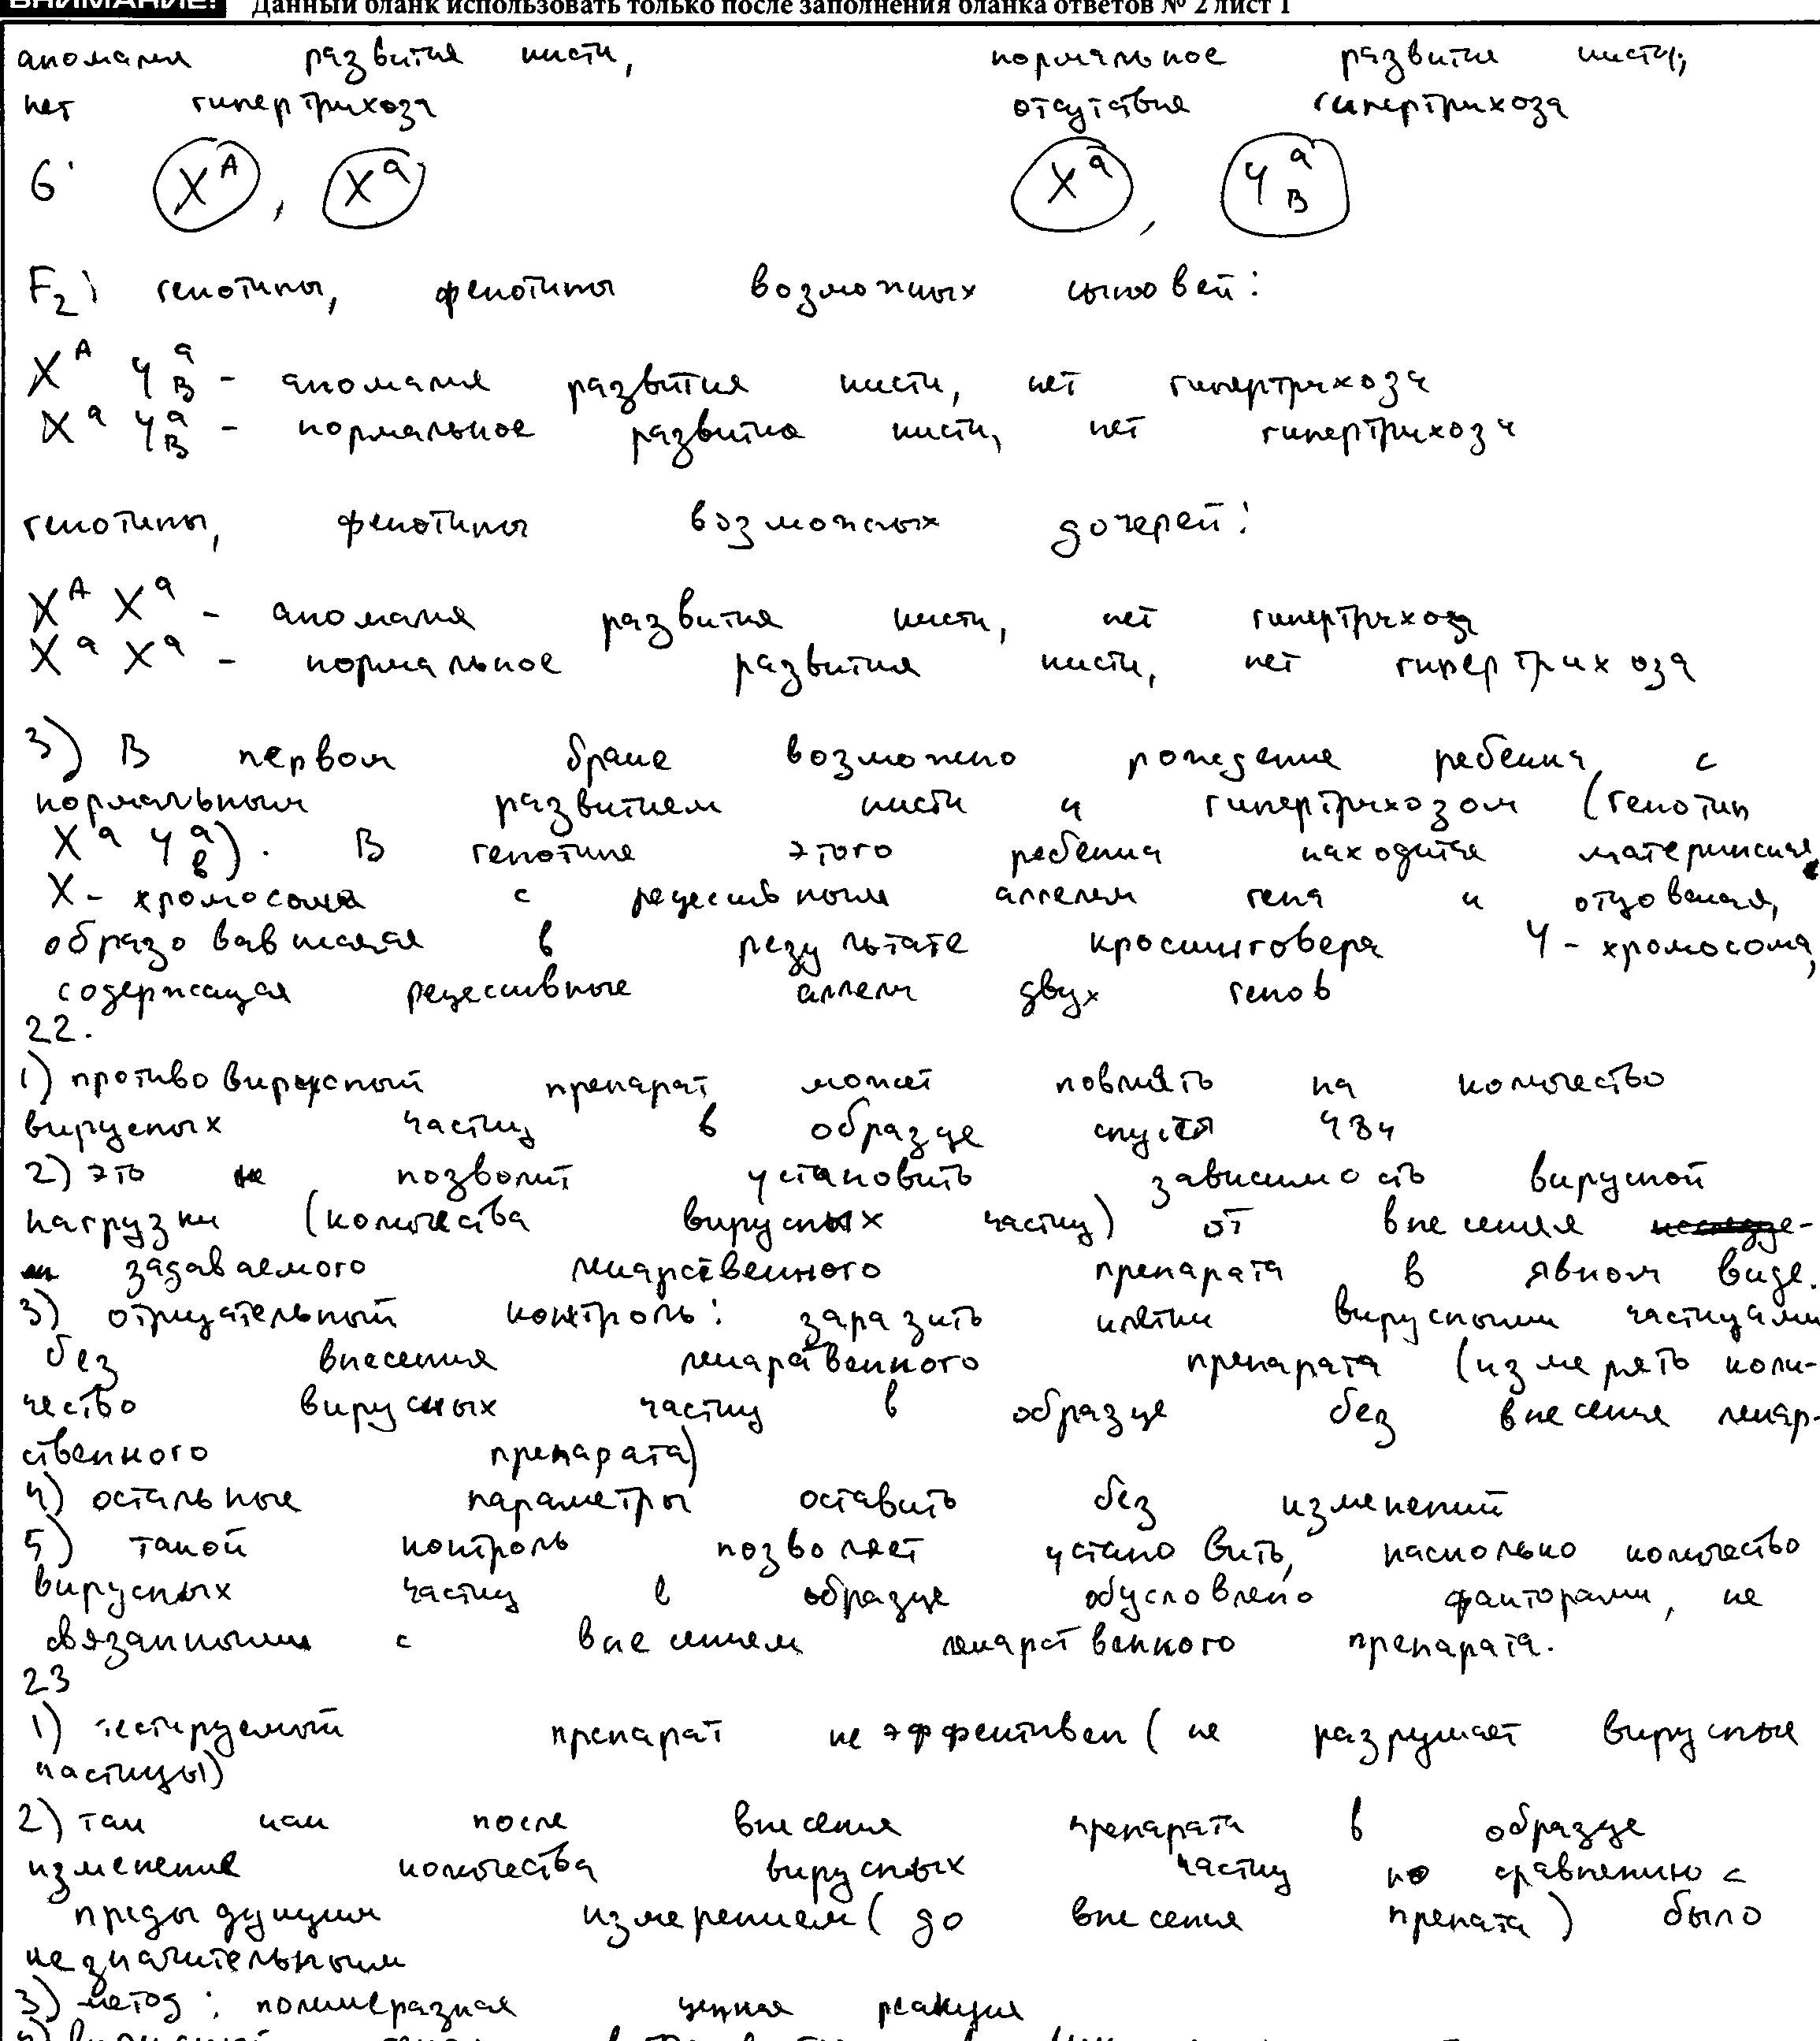 ВНИМАНИЕ! Данный бланк использовать только после заполнения бланка ответов № 2 лист 1
аномалия развития кисти, нормальное развитие кисти,
нет гипертрихоза отсутствие гипертрихоза
G: X^A, X^a X^a, Y^a_B
F2: генотипы, фенотипы возможных сыновей:
X^A Y^a_B - аномалия развития кисти, нет гипертрихоза
X^a Y^a_B - нормальное развитие кисти, нет гипертрихоза
генотипы, фенотипы возможных дочерей:
X^A X^a - аномалия развития кисти, нет гипертрихоза
X^a X^a - нормальное развития кисти, нет гипертрихоза
3) В первом браке возможно рождение ребенка с
нормальным развитием кисти и гипертрихозом (генотип
X^a Y^a_b). В генотипе этого ребенка находится материнская
X-хромосома с рецессивным аллелем гена и отцовская,
образовавшаяся в результате кросинговера Y-хромосома,
содержащая рецессивные аллели двух генов
22.
1) противовирусный препарат может повлиять на количество
вирусных частиц в образце спустя 48ч
2) это позволит установить зависимость вирусной
нагрузки (количества вирусных частиц) от внесения
задаваемого лекарственного препарата в явном виде.
3) отрицательный контроль: заразить клетки вирусными частицами
без внесения лекарственного препарата (измерять коли-
чество вирусных частиц в образце без внесения лекар-
ственного препарата)
4) остальные параметры оставить без изменений
5) такой контроль позволяет установить, насколько количество
вирусных частиц в образце обусловлено факторами, не
связанными с внесением лекарственного препарата.
23
1) тестируемый препарат не эффективен (не разрушает вирусные
частицы)
2) так как после внесения препарата в образце
изменение количества вирусных частиц по сравнению с
предыдущим измерением (до внесения препата) было
незначительным
3) метод: полимеразная цепная реакция